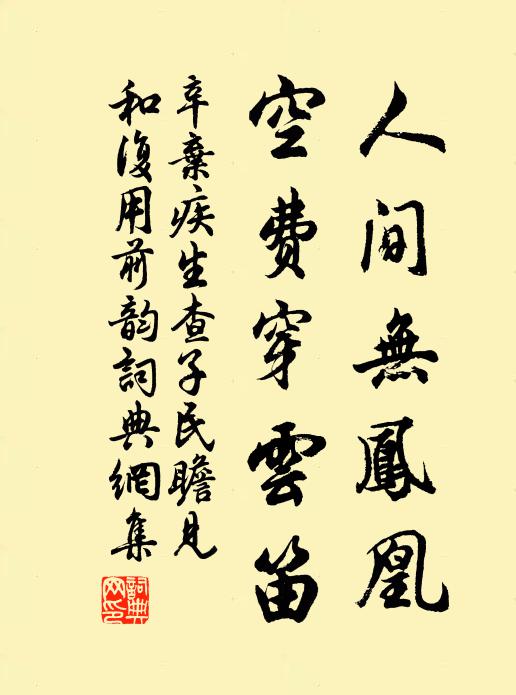 人間無鳳凰
空費穿雲笛
辛棄疾生查子民瞻見
和復用前韵詞典網集
詞典网印